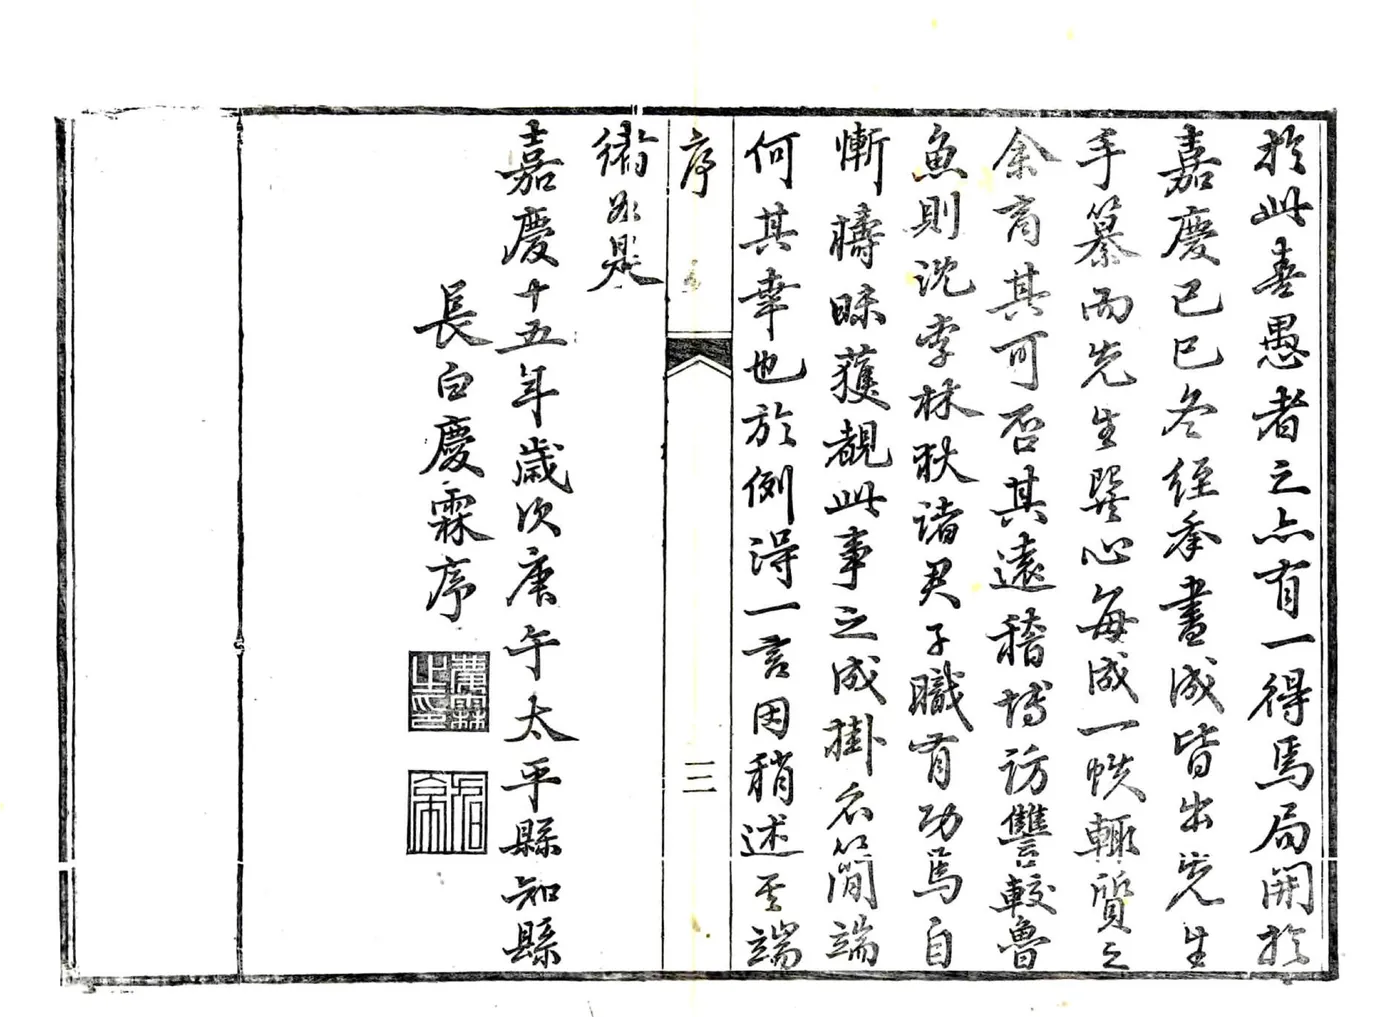 於此喜愚者之亦有一得焉局開於
嘉慶己巳冬經秊書成皆出先生
手纂而先生巽心每成一帙輒質之
余商其可否其遠稽博訪讐較魯
魚則沈李林耿諸君子職有功焉自
慚檮昧獲覩此事之成掛名簡端
何其幸也於例得一言因稍述其端
序
三
緒如是
嘉慶十五年歲次庚午太平縣知縣
長白慶霖序
慶霖之印